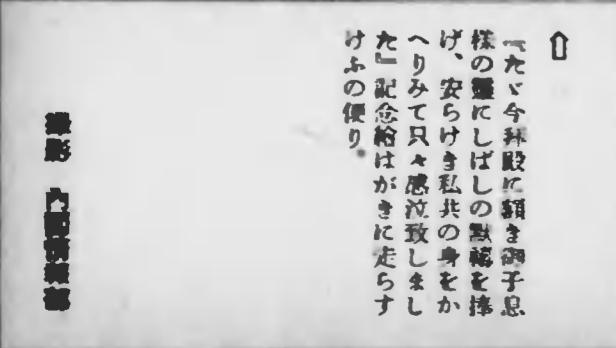 ⇧
『たゞ今拜殿に額き御子息
樣の靈にしばしの默禱を捧
げ、安らけき私共の身をか
へりみて只々感泣致しまし
た』記念繪はがきに走らす
けふの便り。
撮影 內閣情報部